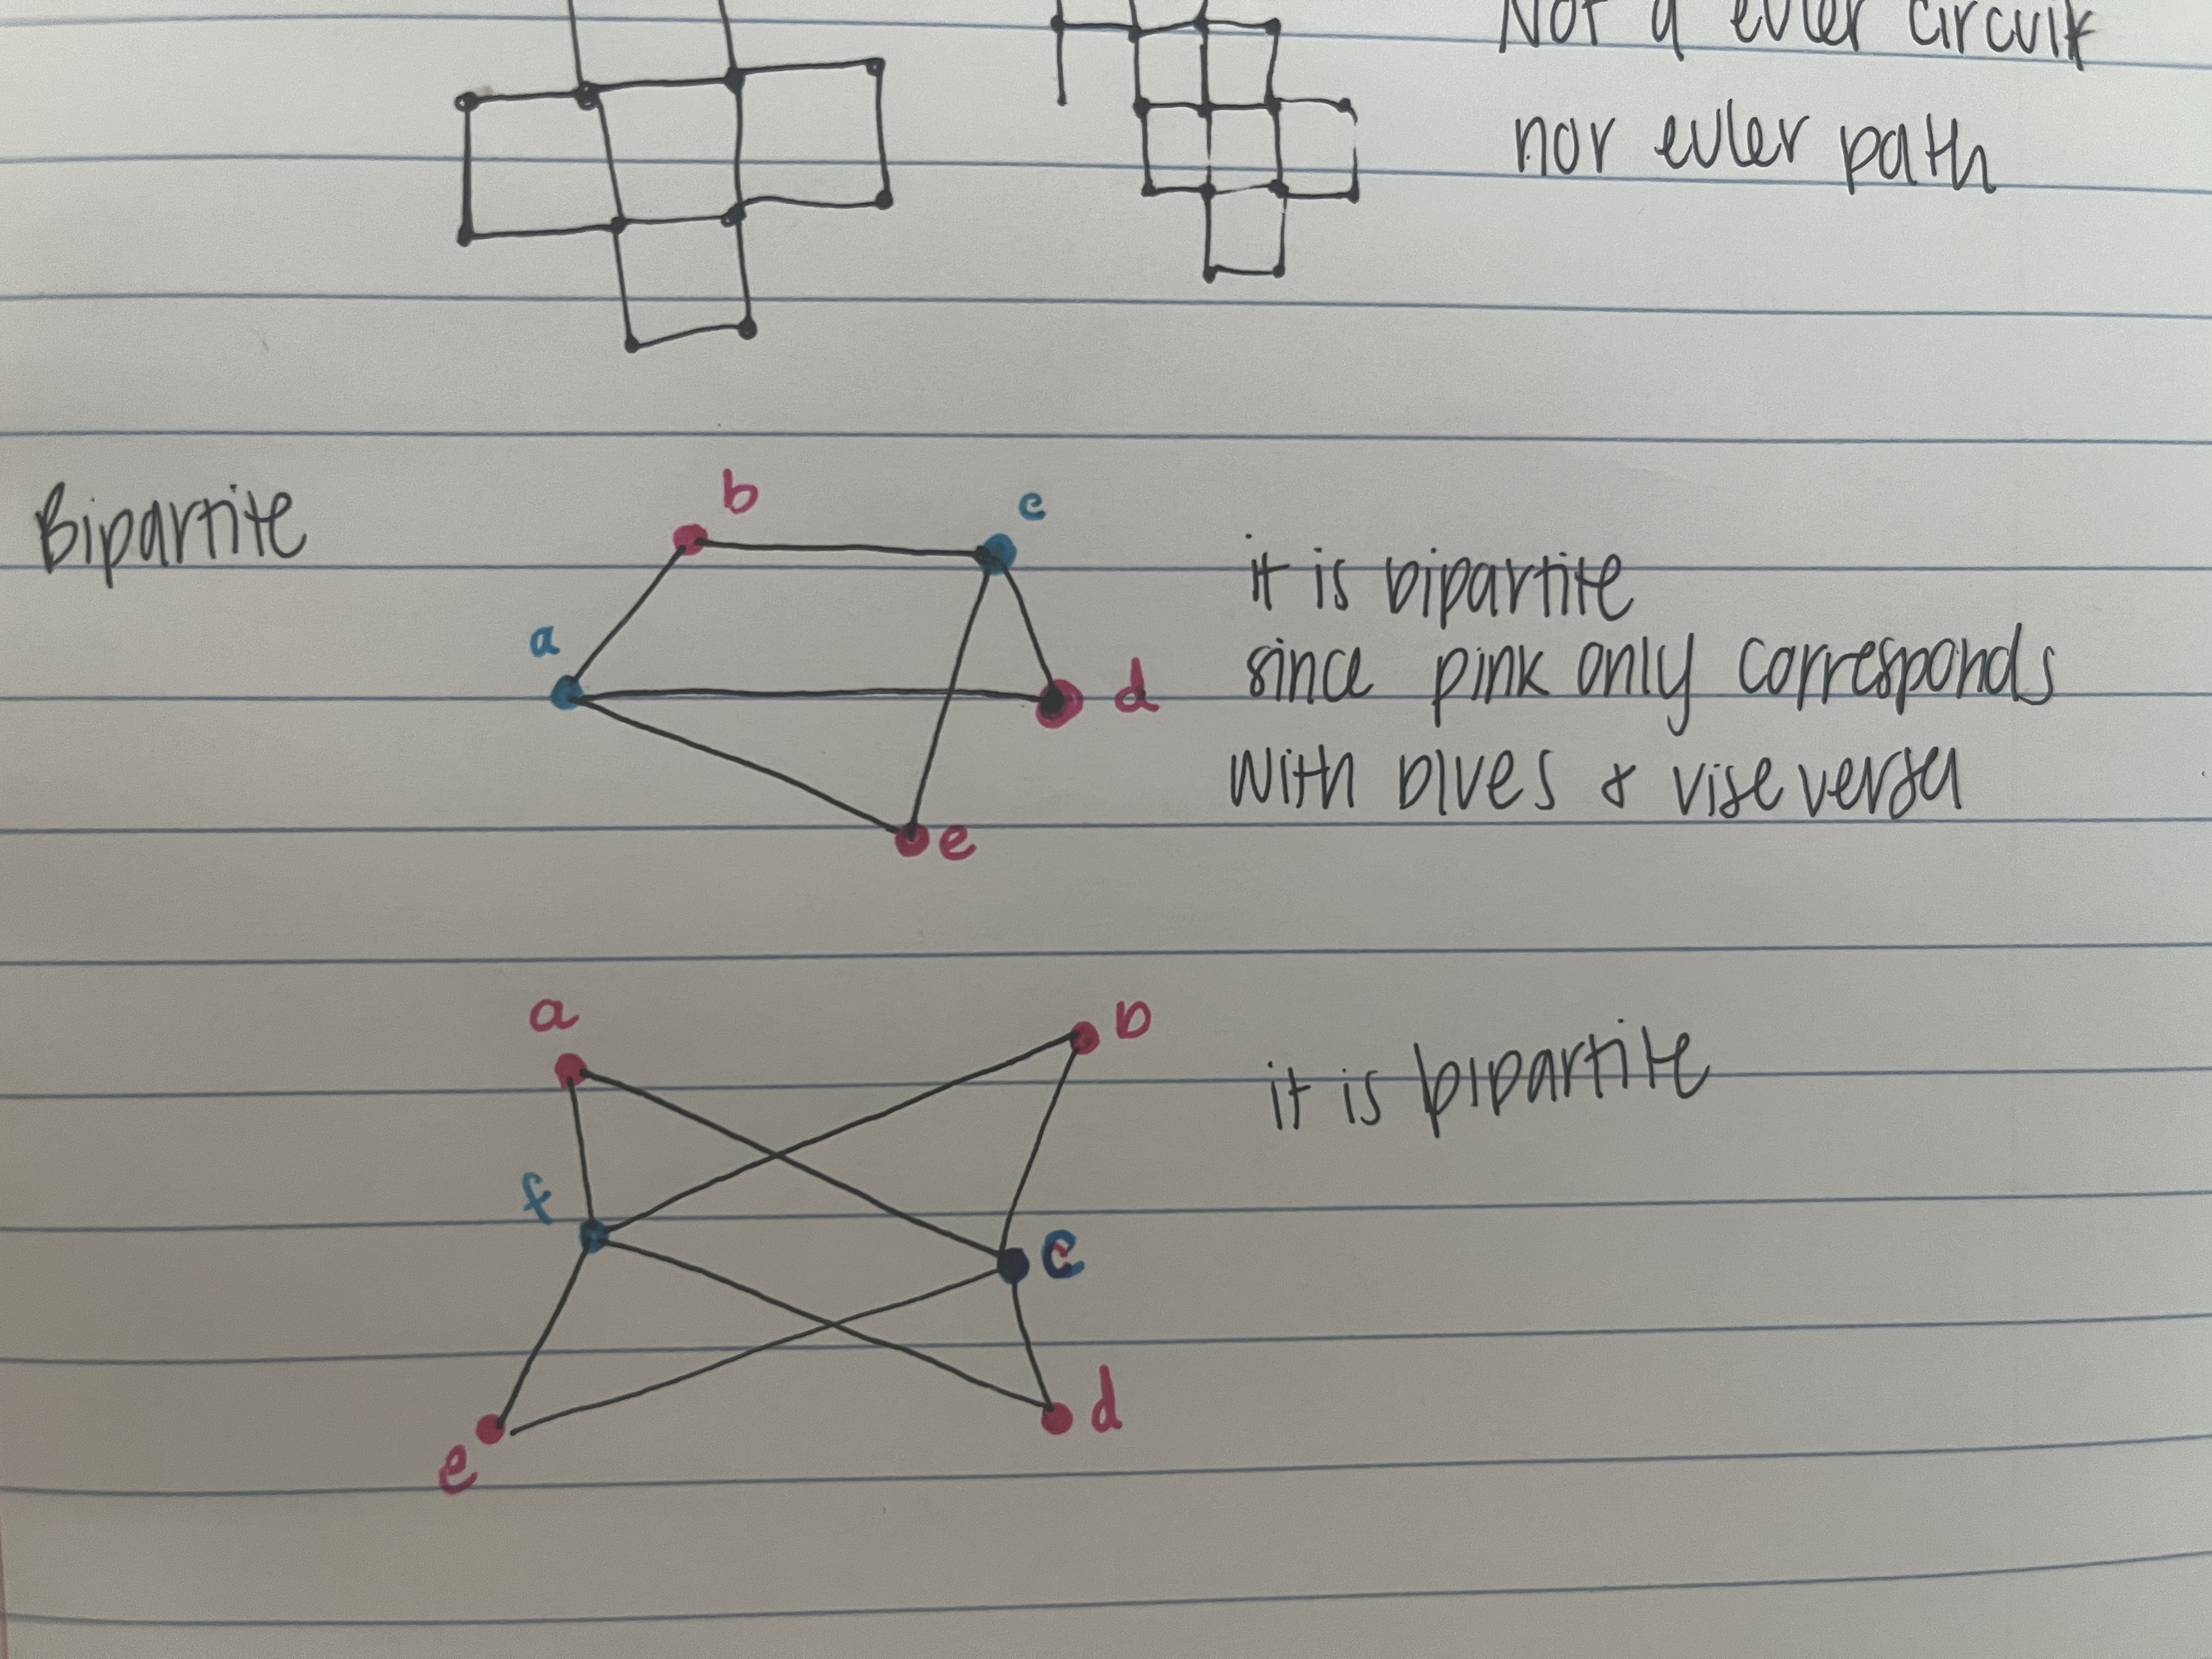 Not a euler circuit
nor euler path
Bipartite
a
b
c
d
e
it is bipartite
since pink only corresponds
with blues & vise versa
a
b
f
c
e
d
it is bipartite